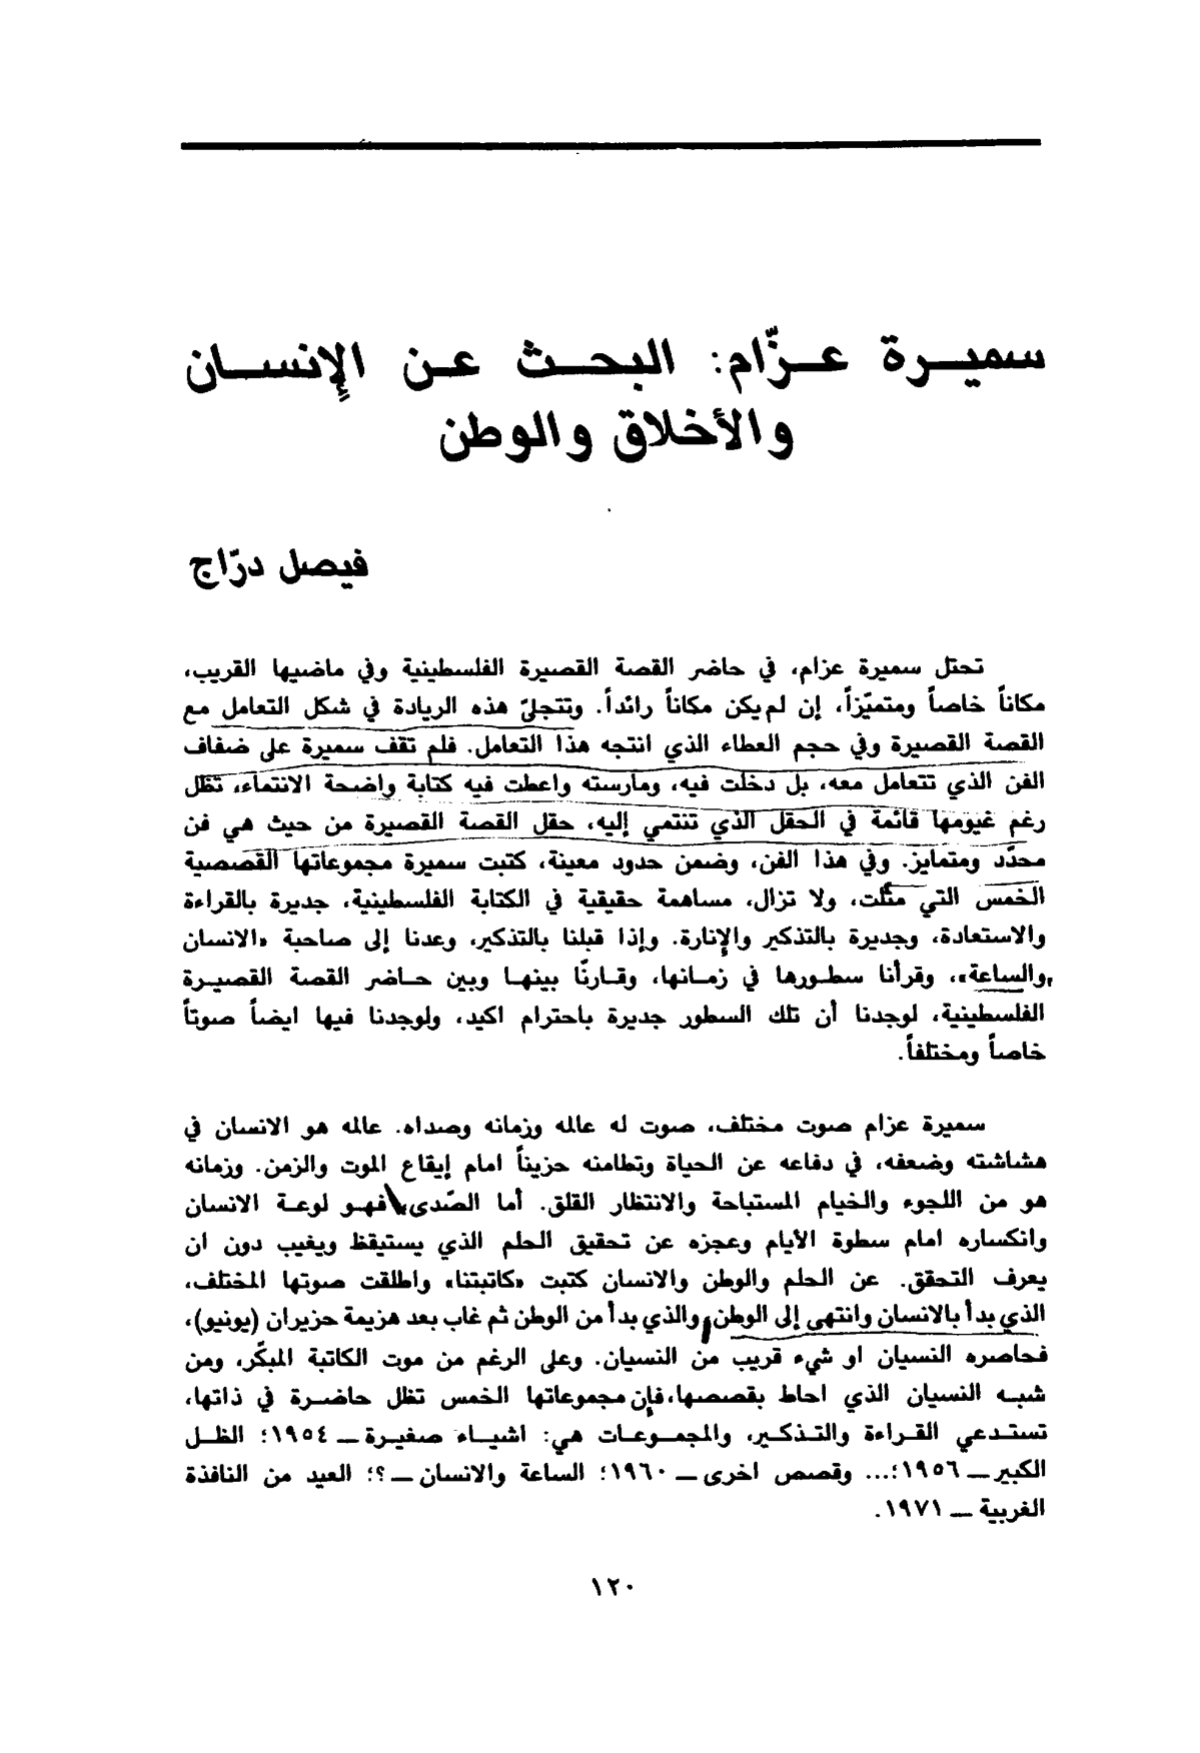 سميرة عزّام: البحث عن الإنسان
والأخلاق والوطن
فيصل درّاج
تحتل سميرة عزام، في حاضر القصة القصيرة الفلسطينية وفي ماضيها القريب،
مكاناً خاصاً ومتميّزاً، إن لم يكن مكاناً رائداً. وتتجلىّ هذه الريادة في شكل التعامل مع
القصة القصيرة وفي حجم العطاء الذي انتجه هذا التعامل. فلم تقف سميرة على ضفاف
الفن الذي تتعامل معه، بل دخلت فيه، ومارسته واعطت فيه كتابة واضحة الانتماء، تظل
رغم غيومها قائمة في الحقل الذي تنتمي إليه، حقل القصة القصيرة من حيث هي فن
محدّد ومتمايز. وفي هذا الفن، وضمن حدود معينة، كتبت سميرة مجموعاتها القصصية
الخمس التي مثّلت، ولا تزال، مساهمة حقيقية في الكتابة الفلسطينية، جديرة بالقراءة
والاستعادة، وجديرة بالتذكير والإنارة. وإذا قبلنا بالتذكير، وعدنا إلى صاحبة «الانسان
والساعة»، وقرأنا سطورها في زمانها، وقارنّا بينها وبين حاضر القصة القصيرة
الفلسطينية، لوجدنا أن تلك السطور جديرة باحترام اكيد، ولوجدنا فيها ايضاً صوتاً
خاصاً ومختلفاً.
سميرة عزام صوت مختلف، صوت له عالمه وزمانه وصداه. عالمه هو الانسان في
هشاشته وضعفه، في دفاعه عن الحياة وتطامنه حزيناً امام إيقاع الموت والزمن. وزمانه
هو من اللجوء والخيام المستباحة والانتظار القلق. أما الصّدى فهو لوعة الانسان
وانكساره امام سطوة الأيام وعجزه عن تحقيق الحلم الذي يستيقظ ويغيب دون ان
يعرف التحقق. عن الحلم والوطن والانسان كتبت «كاتبتنا» واطلقت صوتها المختلف،
الذي بدأ بالانسان وانتهى إلى الوطن، والذي بدأ من الوطن ثم غاب بعد هزيمة حزيران (يونيو)،
فحاصره النسيان او شيء قريب من النسيان. وعلى الرغم من موت الكاتبة المبكّر، ومن
شبه النسيان الذي احاط بقصصها، فإن مجموعاتها الخمس تظل حاضرة في ذاتها،
تستدعي القراءة والتذكير، والمجموعات هي: اشياء صغيرة ــ ١٩٥٤؛ الظل
الكبير ــ ١٩٥٦؛... وقصص اخرى ــ ١٩٦٠؛ الساعة والانسان ــ ؟؛ العيد من النافذة
الغربية ــ ١٩٧١.
١٢٠